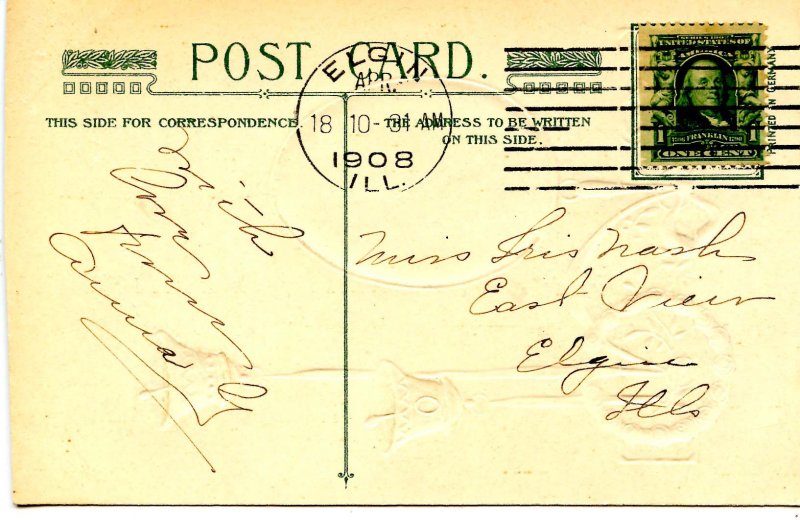 POST CARD.
THIS SIDE FOR CORRESPONDENCE.
THE ADDRESS TO BE WRITTEN
ON THIS SIDE.
ELGIN
APR
18 10-31 AM
1908
ILL.
SERIES 1902
UNITED STATES OF
1 FRANKLIN 1
ONE CENT
PRINTED IN GERMANY
With
love
from
Anna
Miss Iris Nash
East View
Elgin
Ills